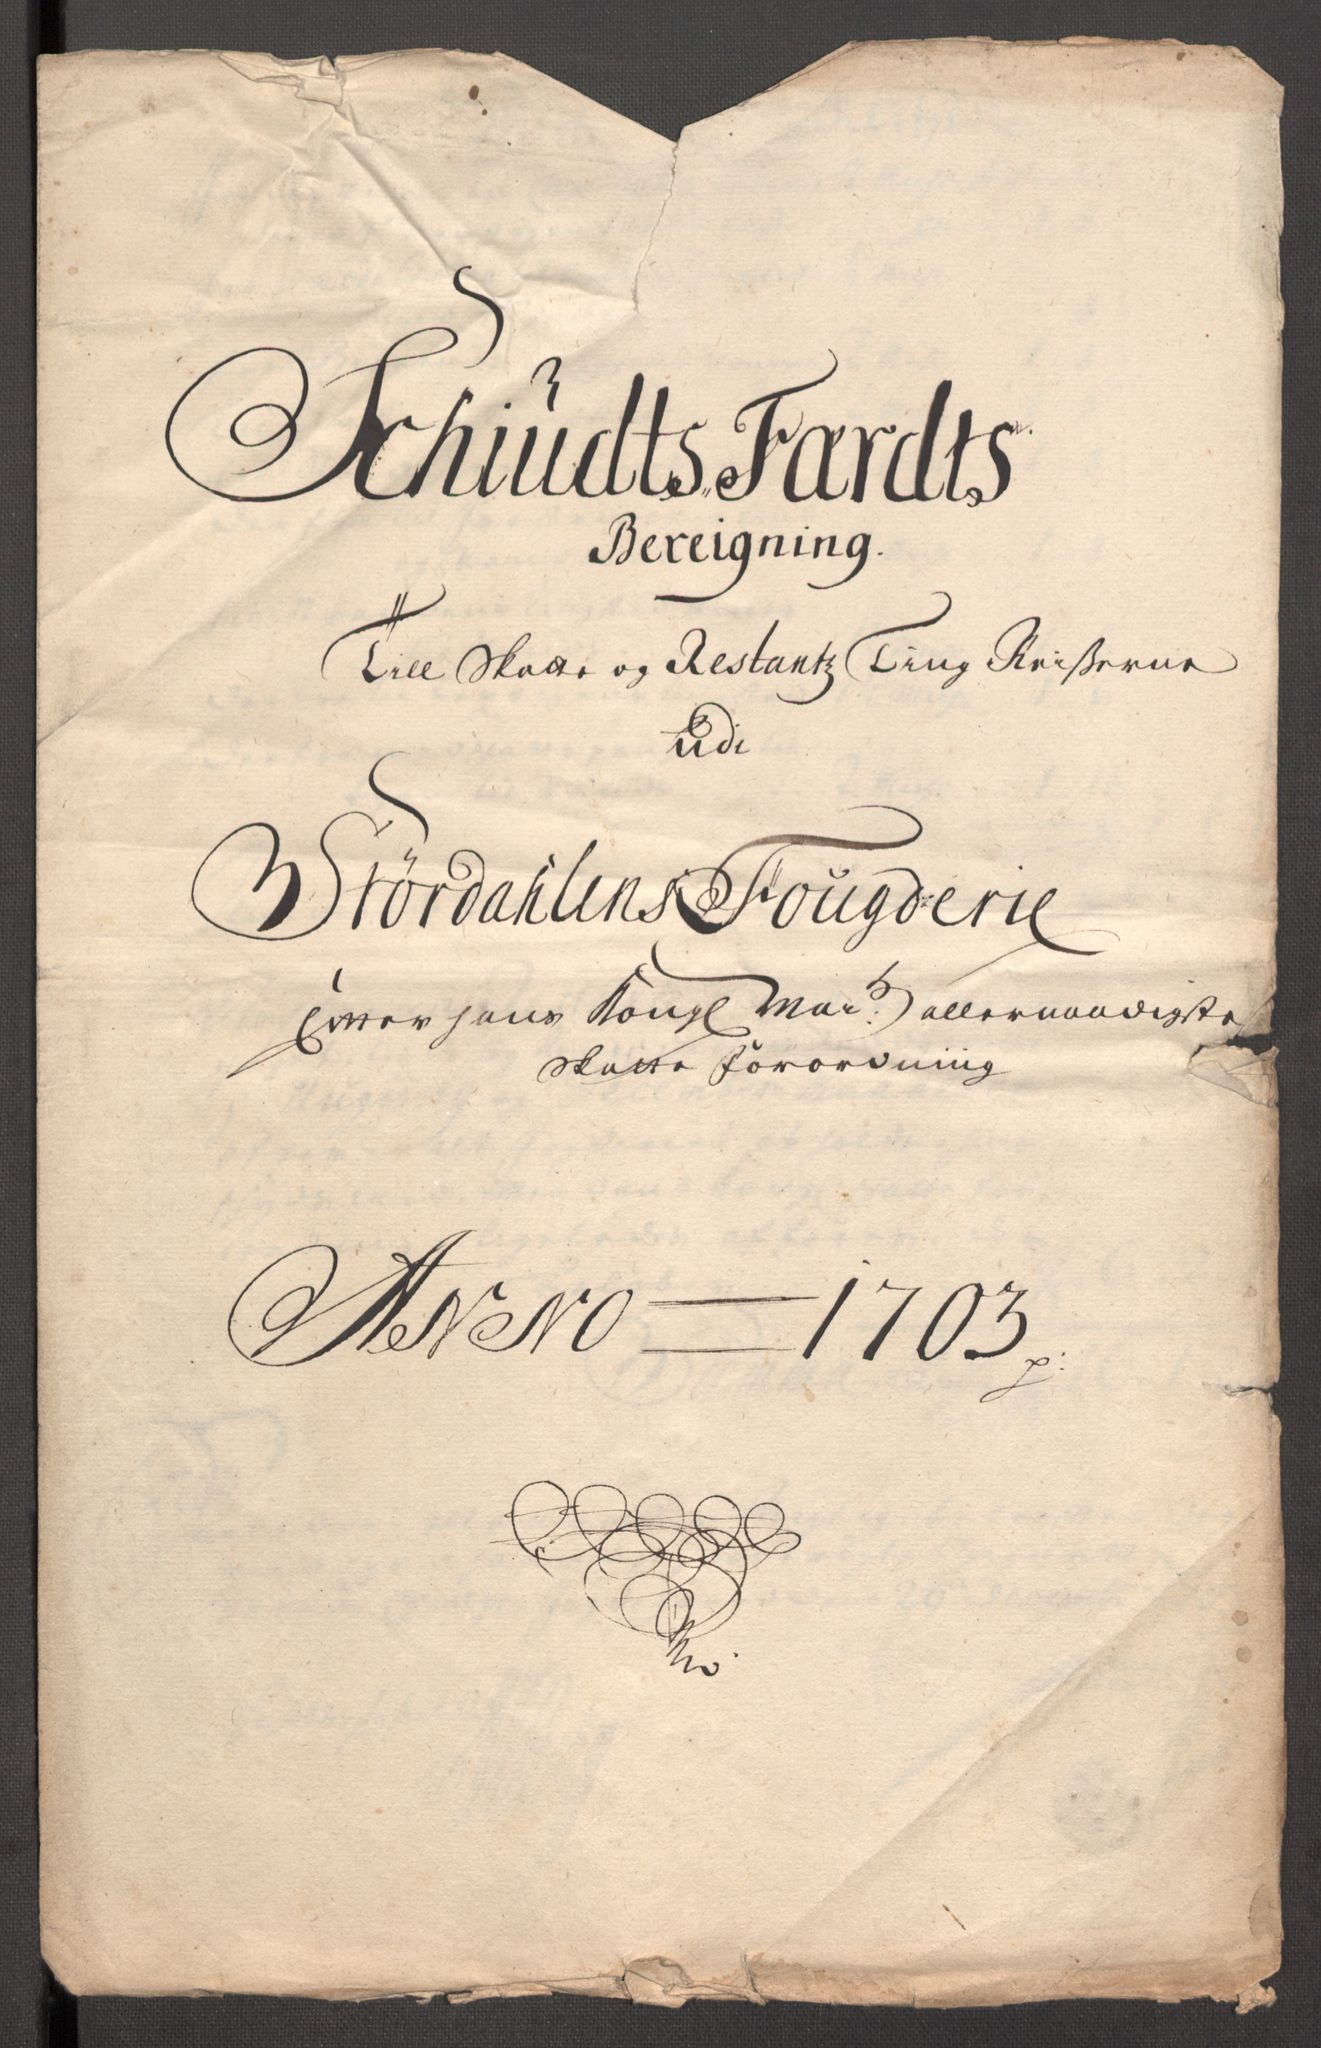 Schiudts Færdts
Bereigning.
Till Skatte og Restantz Ting Reißerne
udi
Stördahlens Fougderie
Effter hans Kongl Mai.ts allernaadigste
Skatte Forordning
ANNO 1703